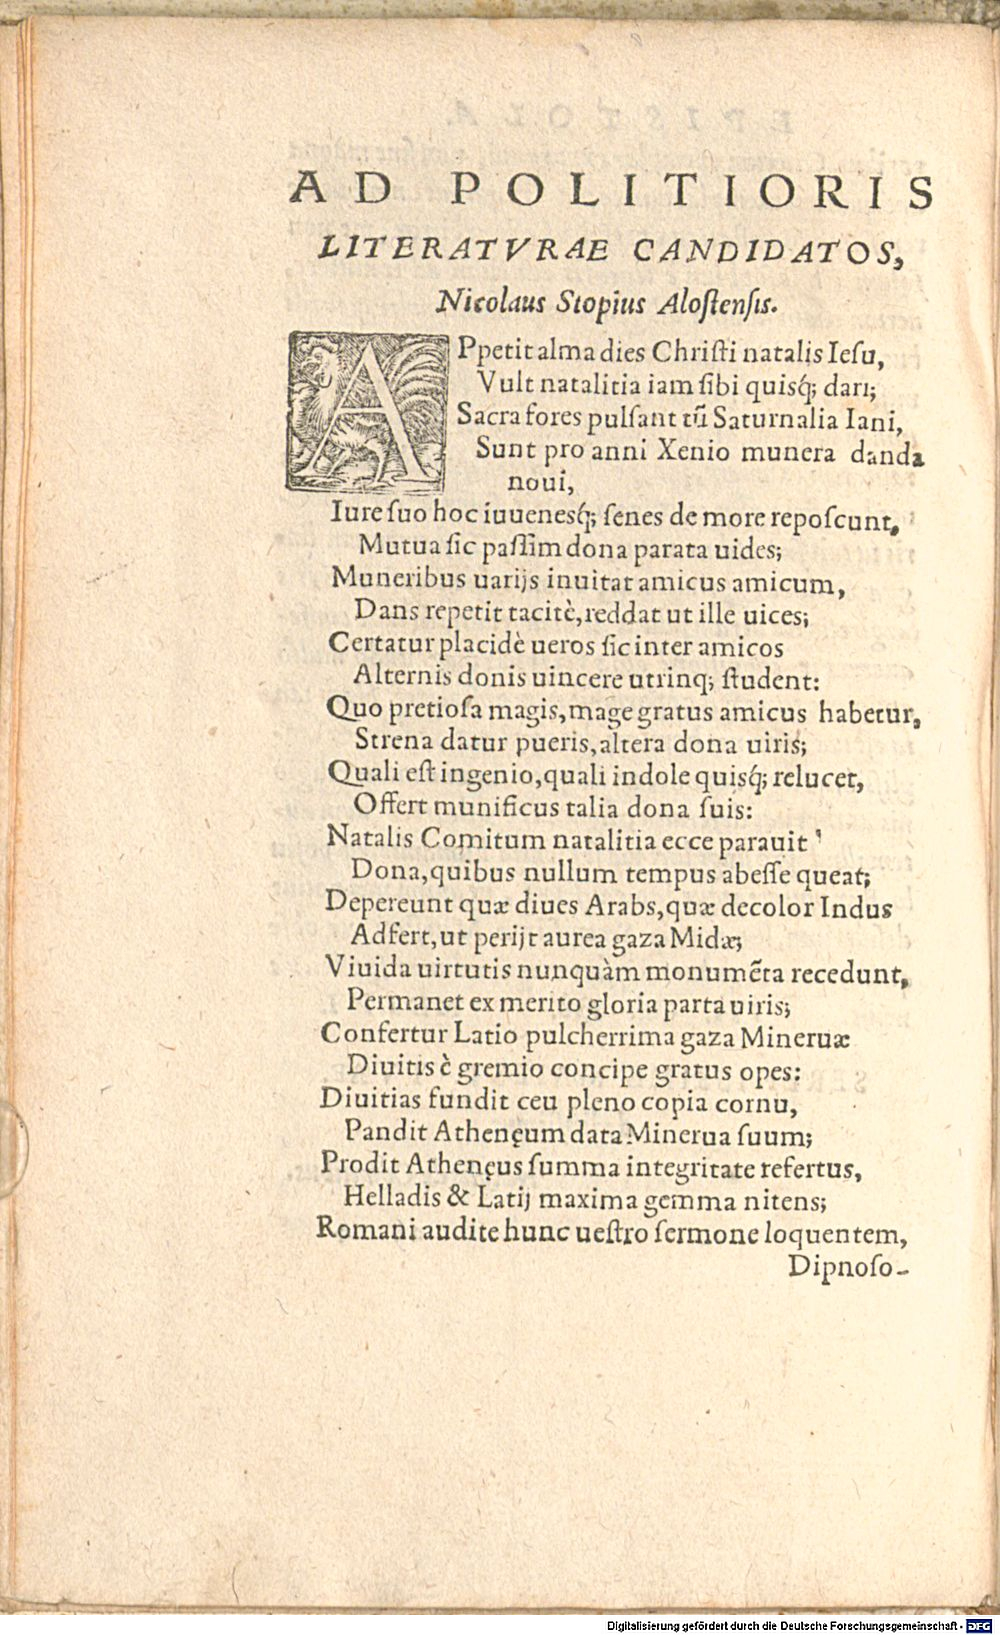 AD POLITIORIS
LITERATVRAE CANDIDATOS,
Nicolaus Stopius Alostensis.
APpetit alma dies Christi natalis Iesu,
Vult natalitia iam sibi quisq́; dari;
Sacra fores pulsant tũ Saturnalia Iani,
Sunt pro anni Xenio munera danda
noui,
Iure suo hoc iuuenesq́; senes de more reposcunt,
Mutua sic passim dona parata uides;
Muneribus uarijs inuitat amicus amicum,
Dans repetit tacitè, reddat ut ille uices;
Certatur placidè ueros sic inter amicos
Alternis donis uincere utrinq; student:
Quo pretiosa magis, mage gratus amicus habetur,
Strena datur pueris, altera dona uiris;
Quali est ingenio, quali indole quisq́; relucet,
Offert munificus talia dona suis:
Natalis Comitum natalitia ecce parauit
Dona, quibus nullum tempus abesse queat;
Depereunt quæ diues Arabs, quæ decolor Indus
Adfert, ut perijt aurea gaza Midæ;
Viuida uirtutis nunquàm monumẽta recedunt,
Permanet ex merito gloria parta uiris;
Confertur Latio pulcherrima gaza Mineruæ
Diuitis è gremio concipe gratus opes:
Diuitias fundit ceu pleno copia cornu,
Pandit Athenęum data Minerua suum;
Prodit Athenęus summa integritate refertus,
Helladis & Latij maxima gemma nitens;
Romani audite hunc uestro sermone loquentem,
Dipnoso-
Digitalisierung gefördert durch die Deutsche Forschungsgemeinschaft - DFG